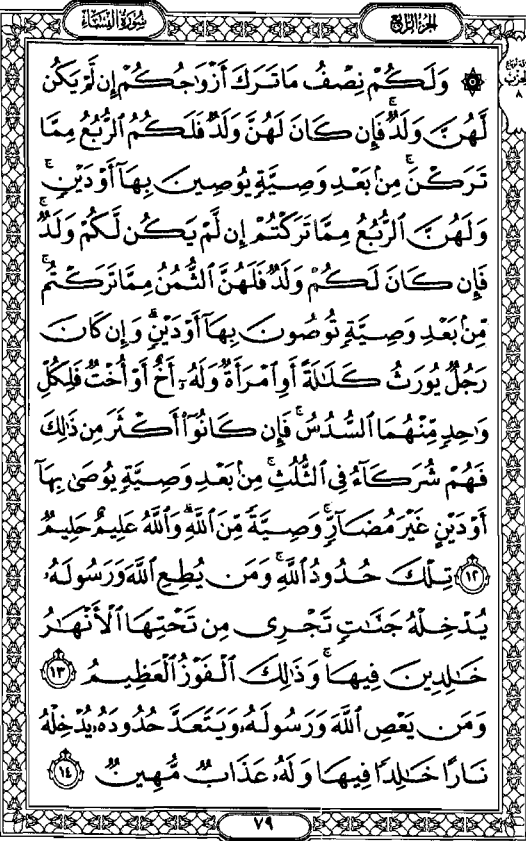 سُورَةُ النِّسَاءِ
الجُزْءُ الرَّابِعُ
۞ وَلَكُمْ نِصْفُ مَا تَرَكَ أَزْوَٰجُكُمْ إِن لَّمْ يَكُن
لَّهُنَّ وَلَدٌ ۚ فَإِن كَانَ لَهُنَّ وَلَدٌ فَلَكُمُ ٱلرُّبُعُ مِمَّا
تَرَكْنَ ۚ مِنۢ بَعْدِ وَصِيَّةٍ يُوصِينَ بِهَآ أَوْ دَيْنٍ ۚ
وَلَهُنَّ ٱلرُّبُعُ مِمَّا تَرَكْتُمْ إِن لَّمْ يَكُن لَّكُمْ وَلَدٌ ۚ
فَإِن كَانَ لَكُمْ وَلَدٌ فَلَهُنَّ ٱلثُّمُنُ مِمَّا تَرَكْتُم ۚ
مِّنۢ بَعْدِ وَصِيَّةٍ تُوصُونَ بِهَآ أَوْ دَيْنٍ ۗ وَإِن كَانَ
رَجُلٌ يُورَثُ كَلَٰلَةً أَوِ ٱمْرَأَةٌ وَلَهُۥٓ أَخٌ أَوْ أُخْتٌ فَلِكُلِّ
وَٰحِدٍ مِّنْهُمَا ٱلسُّدُسُ ۚ فَإِن كَانُوٓا۟ أَكْثَرَ مِن ذَٰلِكَ
فَهُمْ شُرَكَآءُ فِى ٱلثُّلُثِ ۚ مِنۢ بَعْدِ وَصِيَّةٍ يُوصَىٰ بِهَآ
أَوْ دَيْنٍ غَيْرَ مُضَآرٍّ ۚ وَصِيَّةً مِّنَ ٱللَّهِ ۗ وَٱللَّهُ عَلِيمٌ حَلِيمٌ
١٢ تِلْكَ حُدُودُ ٱللَّهِ ۚ وَمَن يُطِعِ ٱللَّهَ وَرَسُولَهُۥ
يُدْخِلْهُ جَنَّٰتٍ تَجْرِى مِن تَحْتِهَا ٱلْأَنْهَٰرُ
خَٰلِدِينَ فِيهَا ۚ وَذَٰلِكَ ٱلْفَوْزُ ٱلْعَظِيمُ ١٣
وَمَن يَعْصِ ٱللَّهَ وَرَسُولَهُۥ وَيَتَعَدَّ حُدُودَهُۥ يُدْخِلْهُ
نَارًا خَٰلِدًا فِيهَا وَلَهُۥ عَذَابٌ مُّهِينٌ ١٤
٧٩